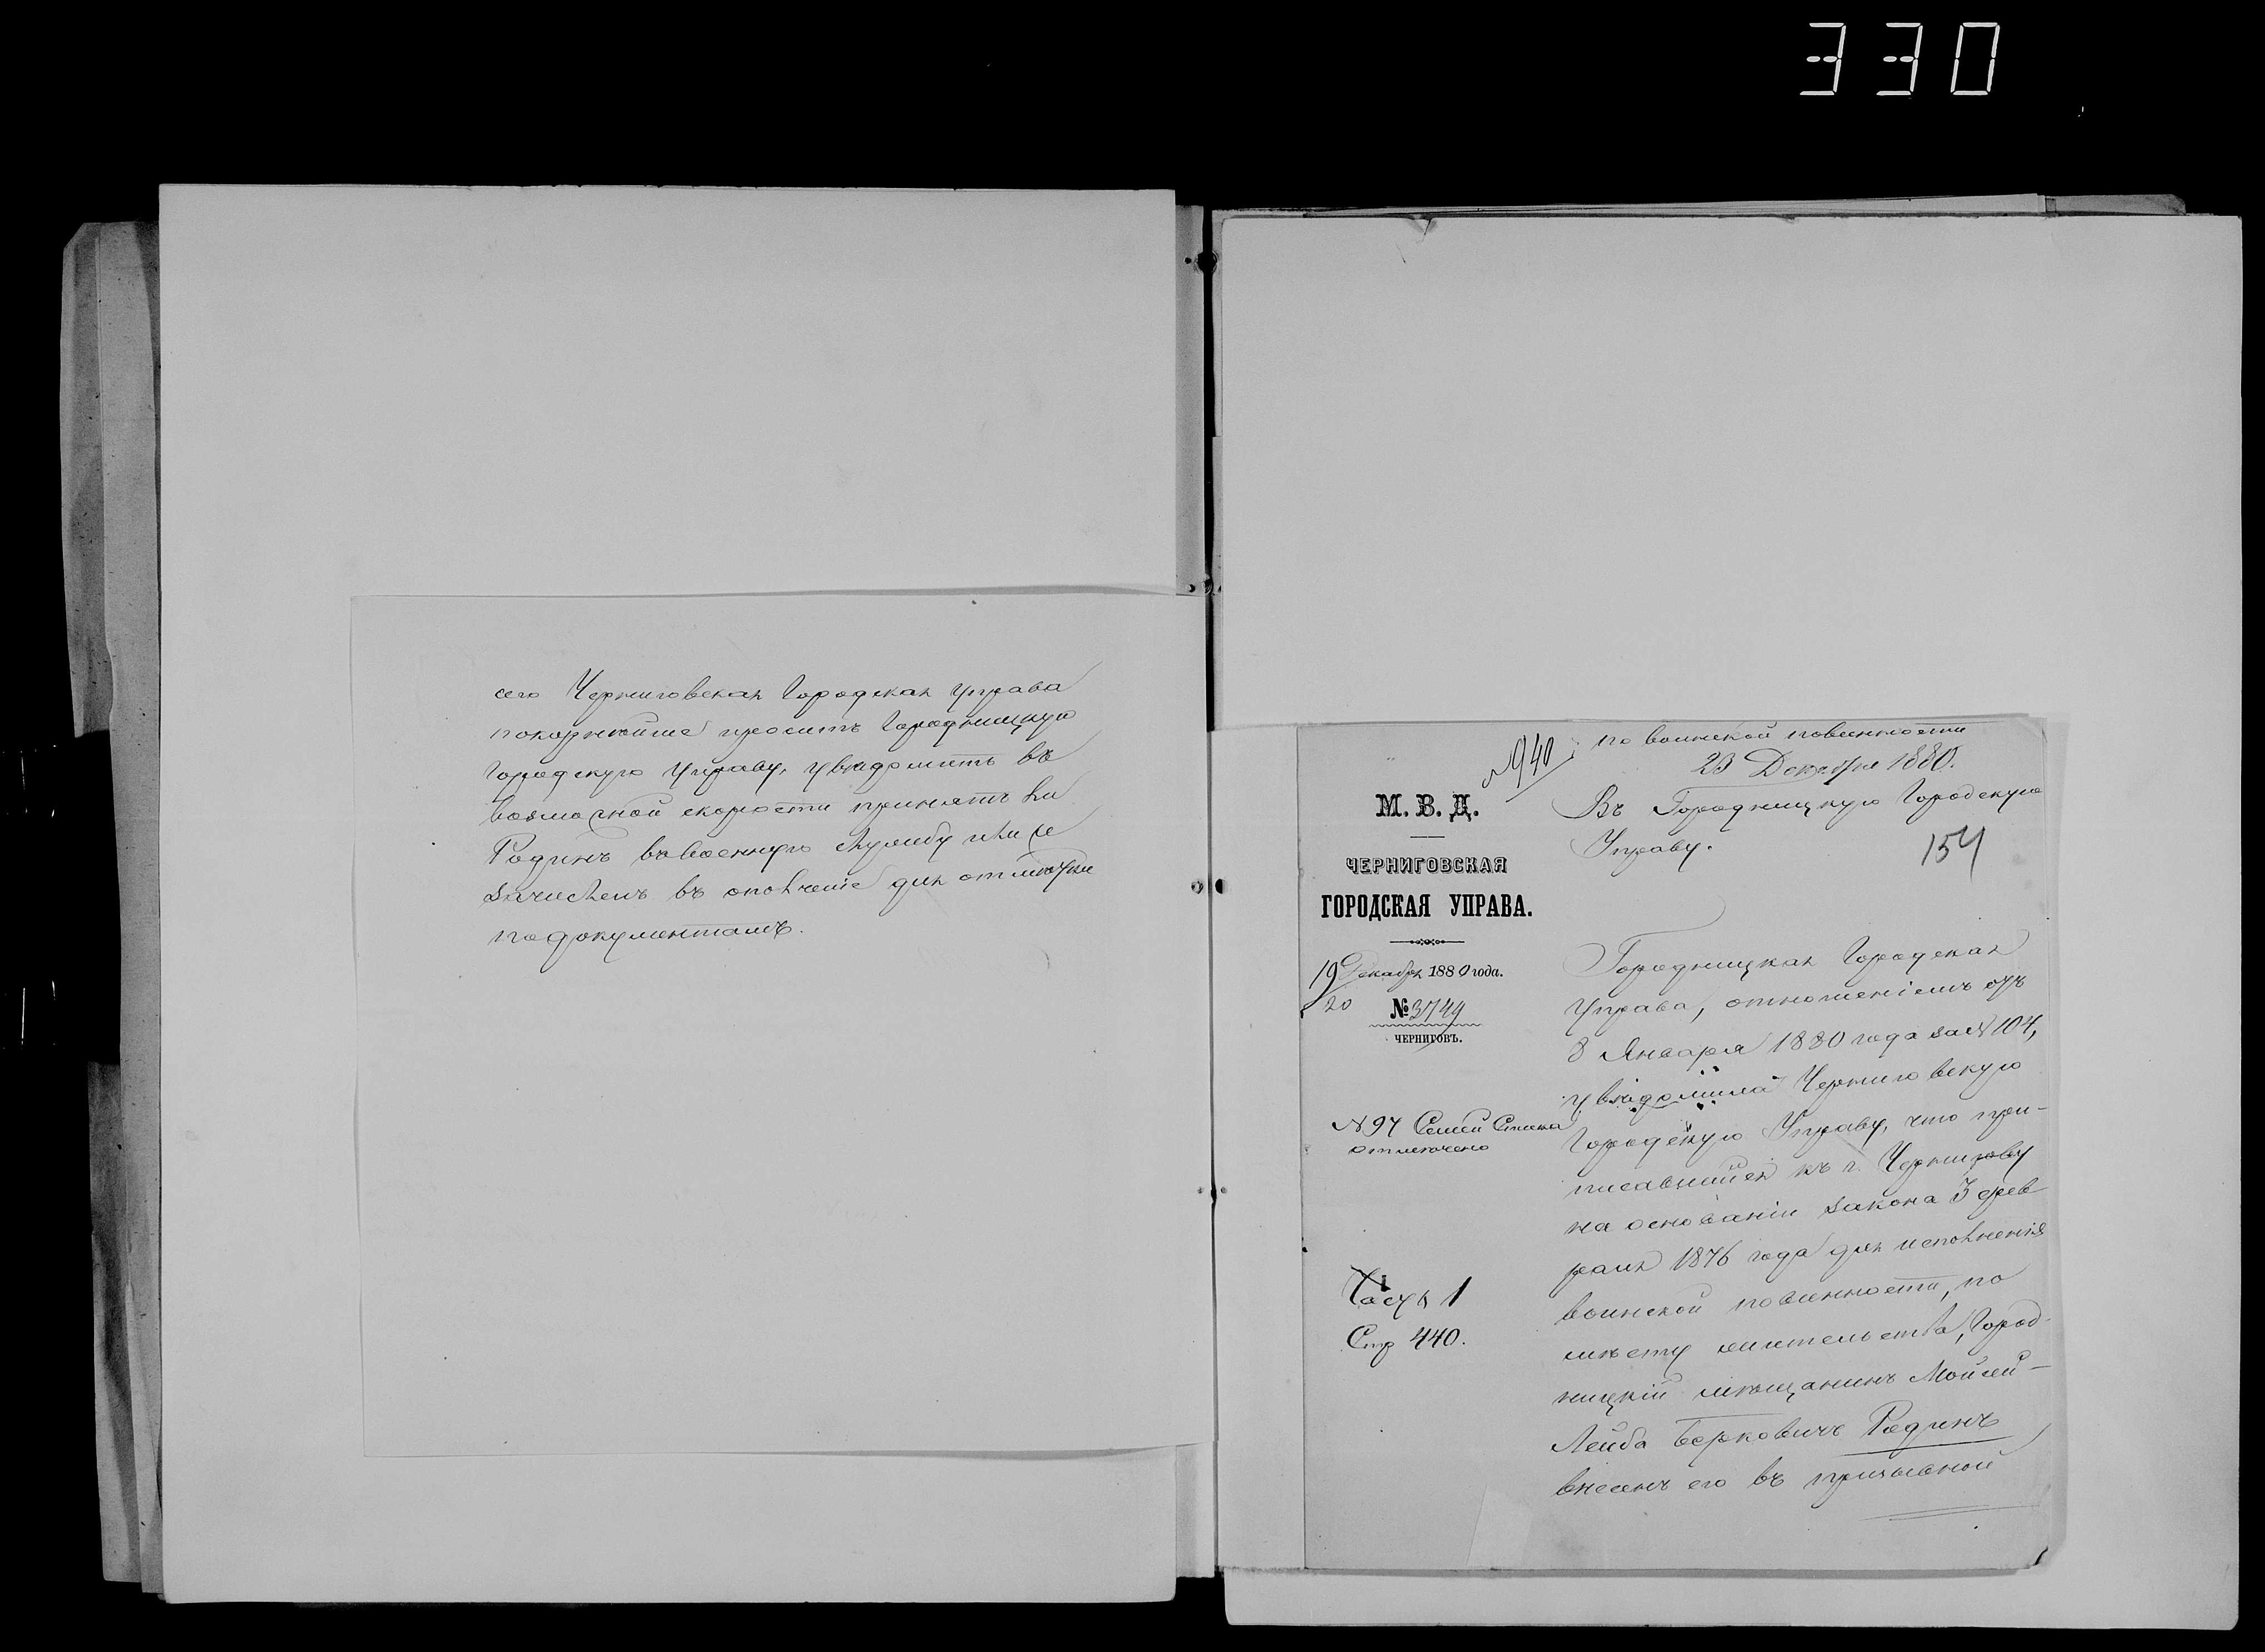 330
сего Черниговская Городская Управа
покорнѣйше проситъ Городницкую
Городскую Управу, увѣдомить въ
возможной скорости принятъ ли
Родинъ въ военную службу или же
зачисленъ въ ополченіе для отмѣтки
по документамъ.
№940
по воинской повинности
23 Декабря 1880.
М. В. Д.
ЧЕРНИГОВСКАЯ
ГОРОДСКАЯ УПРАВА.
19 Декабря 1880 года.
20
№ 3749
ЧЕРНИГОВЪ.
№ 97 Семей Списка
отмѣчено
Часть 1
Стр 440.
Въ Городницкую Городскую
Управу.
154
Городницкая Городская
Управа, отношеніемъ отъ
8 Января 1880 года за № 104,
увѣдомила Черниговскую
Городскую Управу, что при-
писавшійся къ г. Чернигову
на основаніи закона 3 фев
раля 1876 года для исполненія
воинской повинности, по
мѣсту жительства, Город-
ницкій мѣщанинъ Мойсей-
Лейба Берковичъ Родинъ
внесенъ его въ призывной